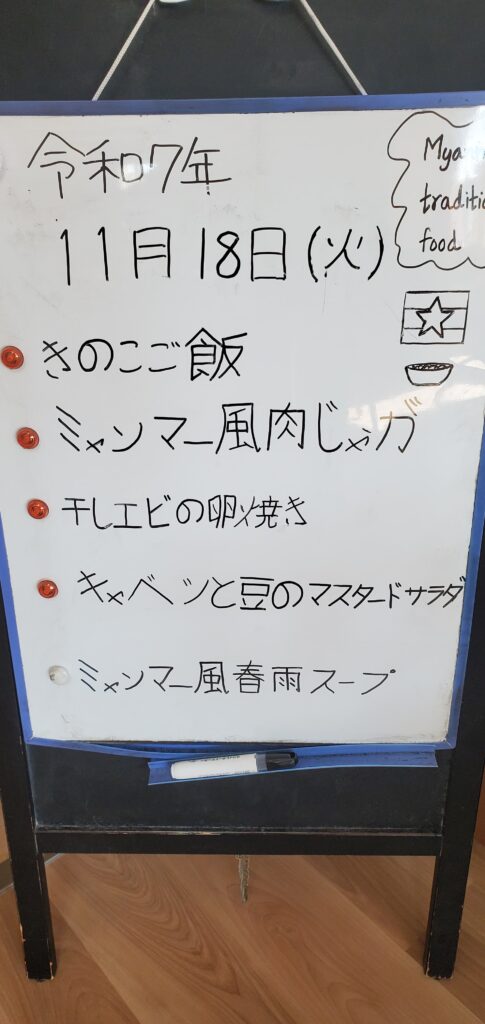 令和7年
11月18日(火)
Mya
traditio
food
きのこご飯
ミャンマー風肉じゃが
干しエビの卵焼き
キャベツと豆のマスタードサラダ
ミャンマー風春雨スープ